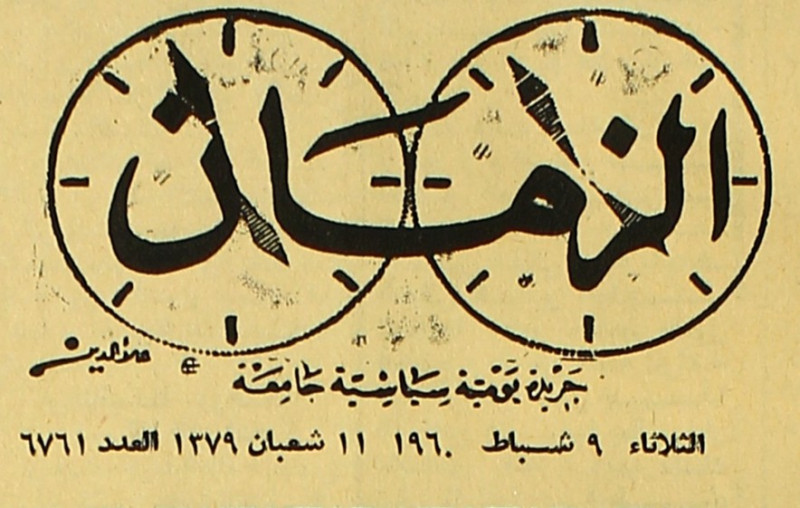 الزمان
علاء الدين
جريدة يومية سياسية جامعة
الثلاثاء ٩ شباط ١٩٦٠ ١١ شعبان ١٣٧٩ العدد ٦٧٦١